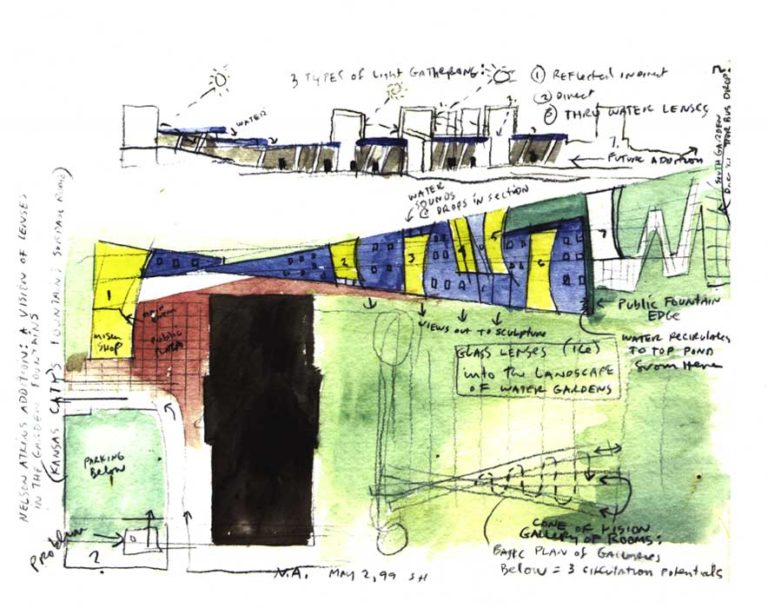 3 TYPES of Light GATHERING:
① REFLECTED INDIRECT
② DIRECT
③ THRU WATER LENSES
WATER
2
1.
3.
7.
FUTURE ADDITION
SOUTH GARDEN
BUS DROP.
WATER
SOUNDS
@ DROPS IN SECTION
NELSON ATKINS ADDITION: A VISION OF LENSES
IN THE GARDEN FOUNTAINS
(KANSAS CITY'S FOUNTAINS
1
2
3
4
5
6
7
SHOP
PUBLIC
PLAZA
VIEWS OUT TO SCULPTURE
PUBLIC FOUNTAIN
EDGE
WATER RECIRCULATES
TO TOP POND
from Here
GLASS LENSES (ICE)
into the LANDSCAPE
OF WATER GARDENS
PARKING
Below
Problem
2
CONE OF VISION
GALLERY OF ROOMS:
BASIC PLAN OF GALLERIES
Below = 3 CIRCULATION POTENTIALS
N.A. MAY 2, 99 SH